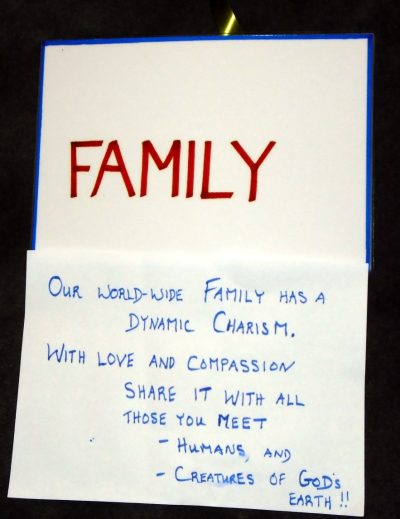 FAMILY
OUR WORLD-WIDE FAMILY HAS A
DYNAMIC CHARISM.
WITH LOVE AND COMPASSION
SHARE IT WITH ALL
THOSE YOU MEET
- HUMANS, AND
- CREATURES OF GOD'S
EARTH !!